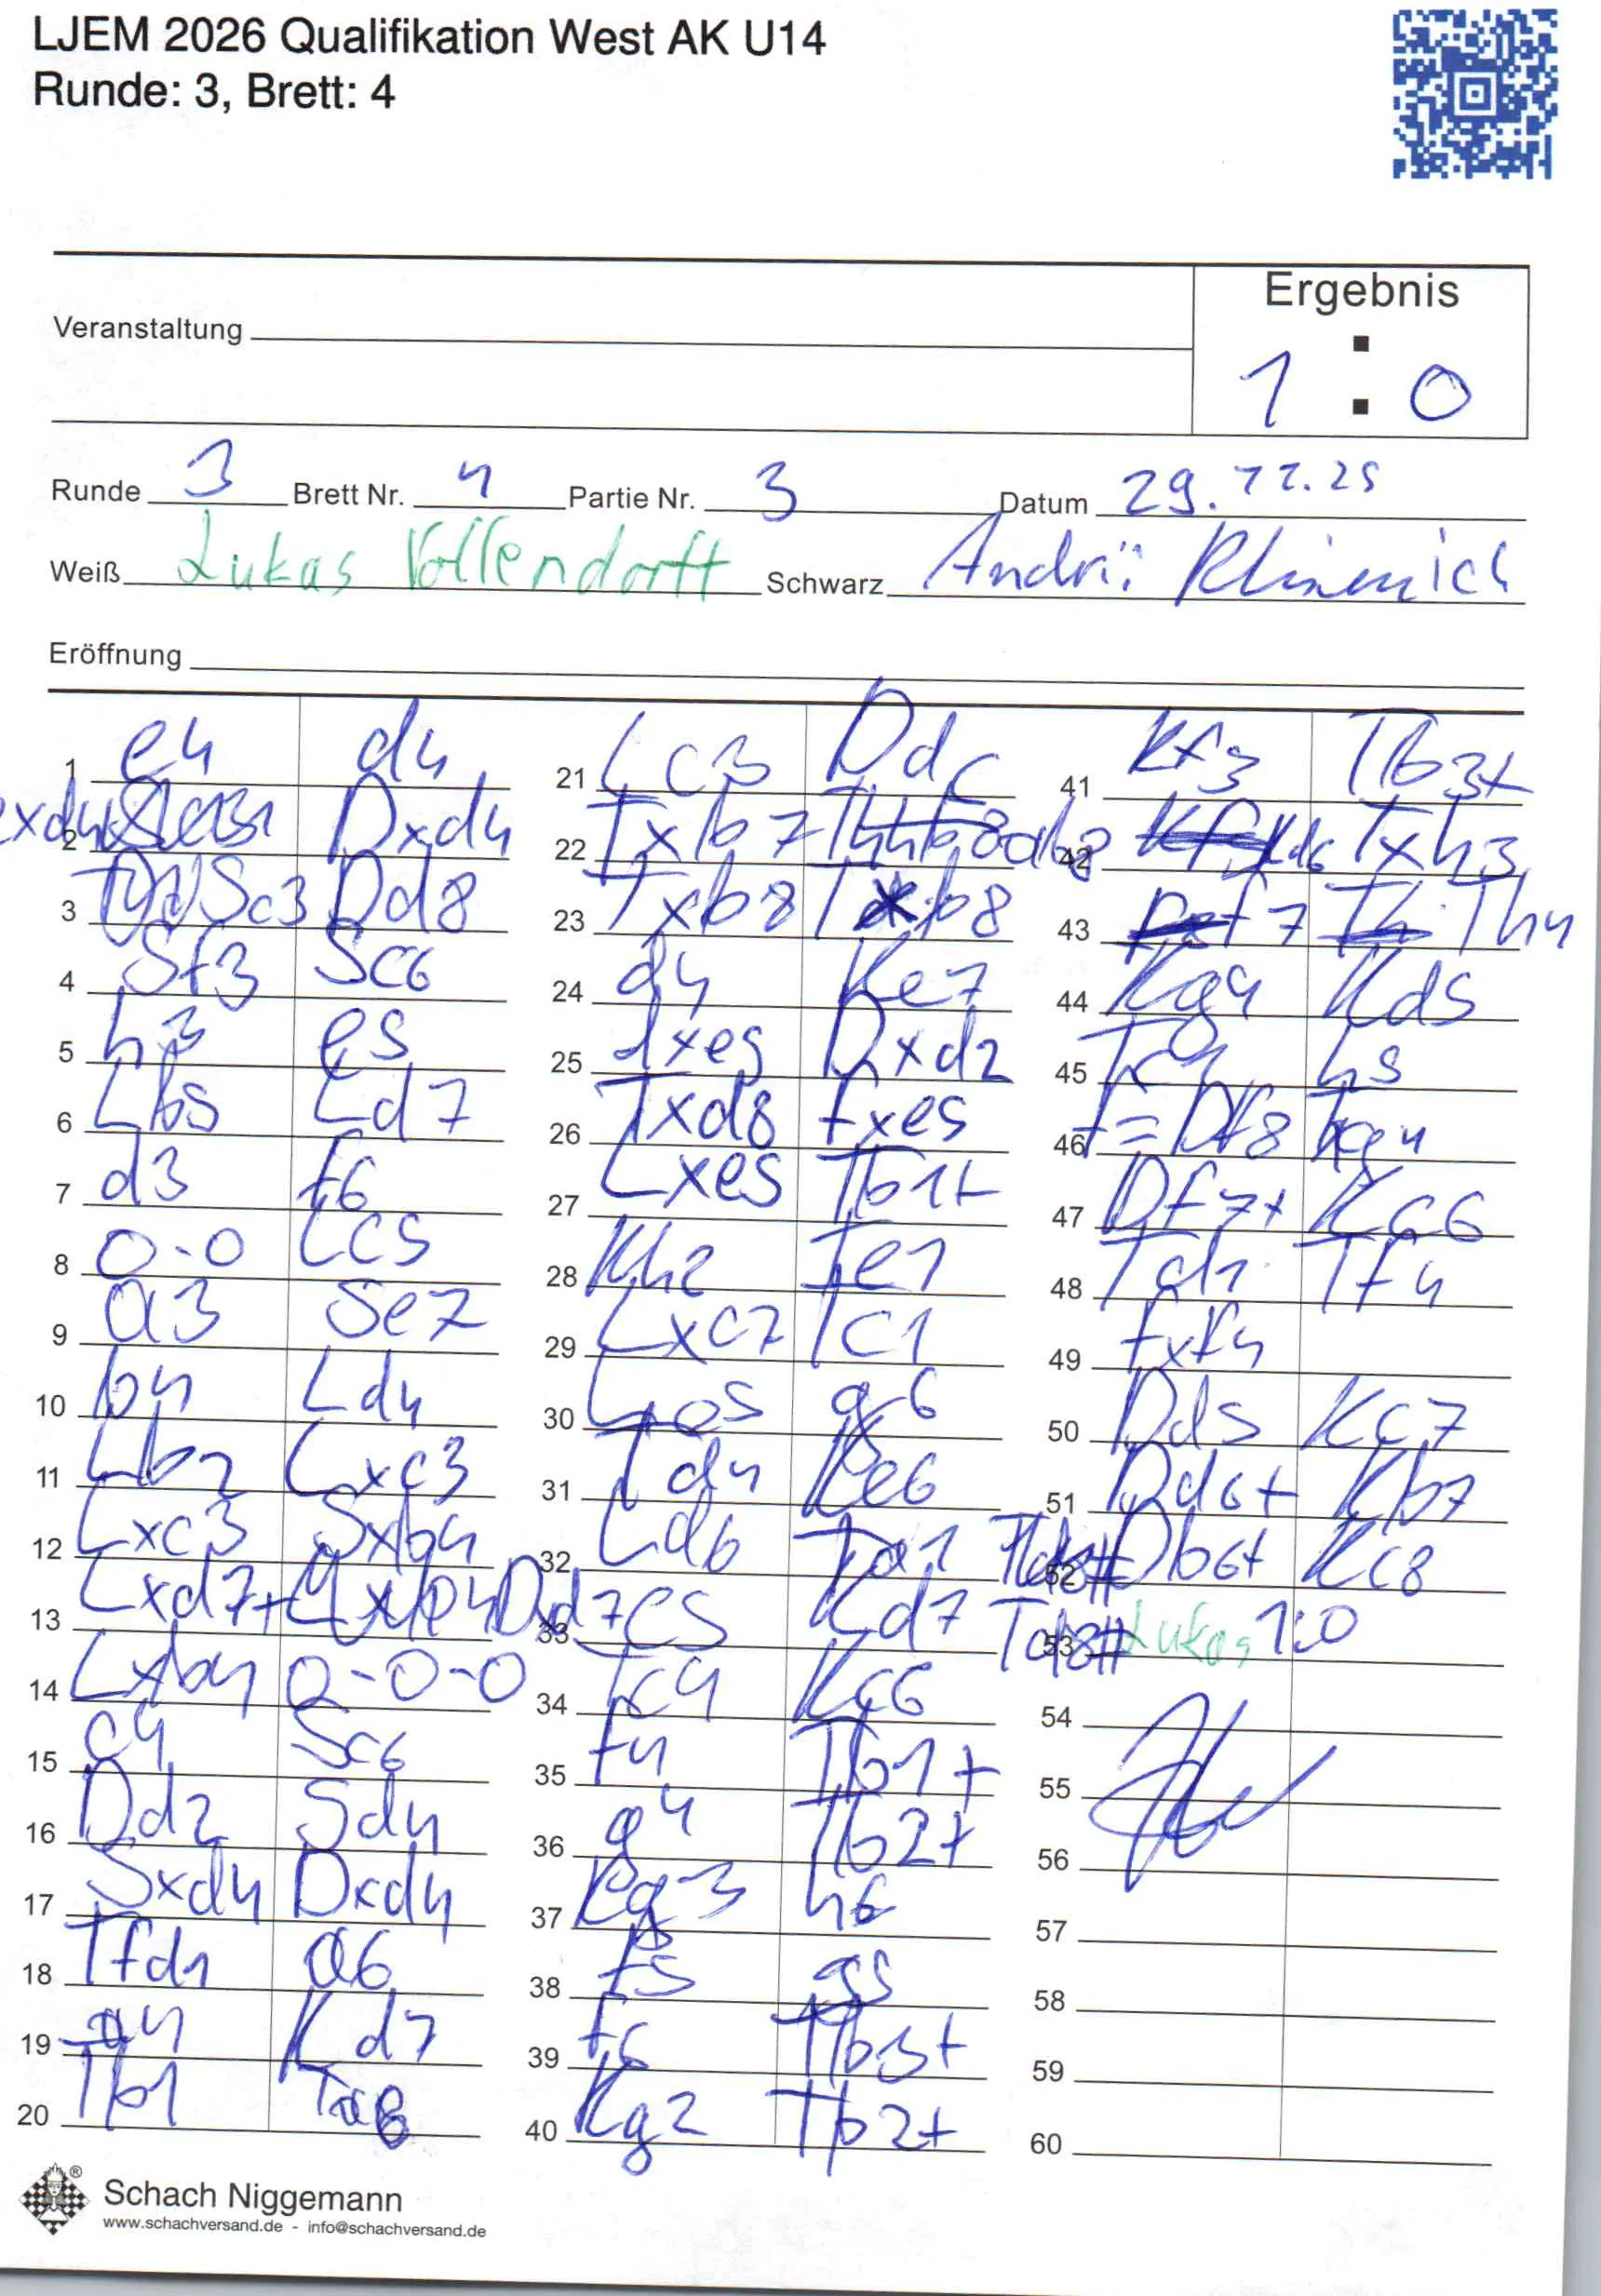 LJEM 2026 Qualifikation West AK U14
Runde: 3, Brett: 4
Ergebnis
Veranstaltung
1 : 0
Runde 3 Brett Nr. 4 Partie Nr. 3 Datum 29.12.25
Weiß Lukas Vollendorff Schwarz Andrii
Eröffnung
1 e4 d4
2 exd4 Dxd4
3 Sc3 Dd8
4 Sf3 Sc6
5 h3 e5
6 Lb5 Ld7
7 d3 f6
8 0-0 Lc5
9 a3 Se7
10 b4 Ld4
11 Lb2 Lxc3
12 Lxc3 Sxb4
13 Lxd7+ Dxd7
14 Lxb4 0-0-0
15 c4 Sc6
16 Dd2 Sd4
17 Sxd4 Dxd4
18 Tfd1 a6
19 a4 Kd7
20 Tb1 Ta8
21 Lc3 Ddc
22 Txb7
23 Txb8 Txb8
24 d4 Ke7
25 dxe5 Dxd2
26 Txd8 fxe5
27 Lxe5 Tb1+
28 Kh2 Te1
29 Lxc7 Tc1
30 La5 g6
31 Td4 Ke6
32 Ld6 Ta1
33 c5 Kd7
34 Tc4 Kc6
35 f4 Tb1+
36 g4 Tb2+
37 Kg3 h6
38 f5 g5
39 f6 Tb3+
40 Kg2 Tb2+
41 Kf3 Tb3+
42 Txh3
43 f7 Th4
44 Kg4 Kd5
45 h5
46 f=Df8
47 Df7+ Kc6
48 Td1 Tf4
49 fxf4
50 Dd5 Kc7
51 Dd6+ Kb7
52 Db6+ Kc8
53 Td8# Lukas 1:0
54
55
56
57
58
59
60
Schach Niggemann
www.schachversand.de - info@schachversand.de